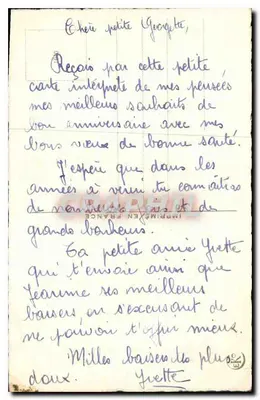 Chère petite Georgette,
Reçois par cette petite
carte intérprète de mes pensées
mes meilleurs souhaits de
bon anniversaire avec mes
bons vœux de bonne santé.
J'espère que dans les
années à venir tu connaîtras
de joies et de
grands bonheurs.
Ta petite amie Yvette
qui t'envoie ainsi que
Jeanne ses meilleurs
baisers, en s'excusant de
ne pouvoir t'offrir mieux.
Milles baisers les plus
doux. Yvette